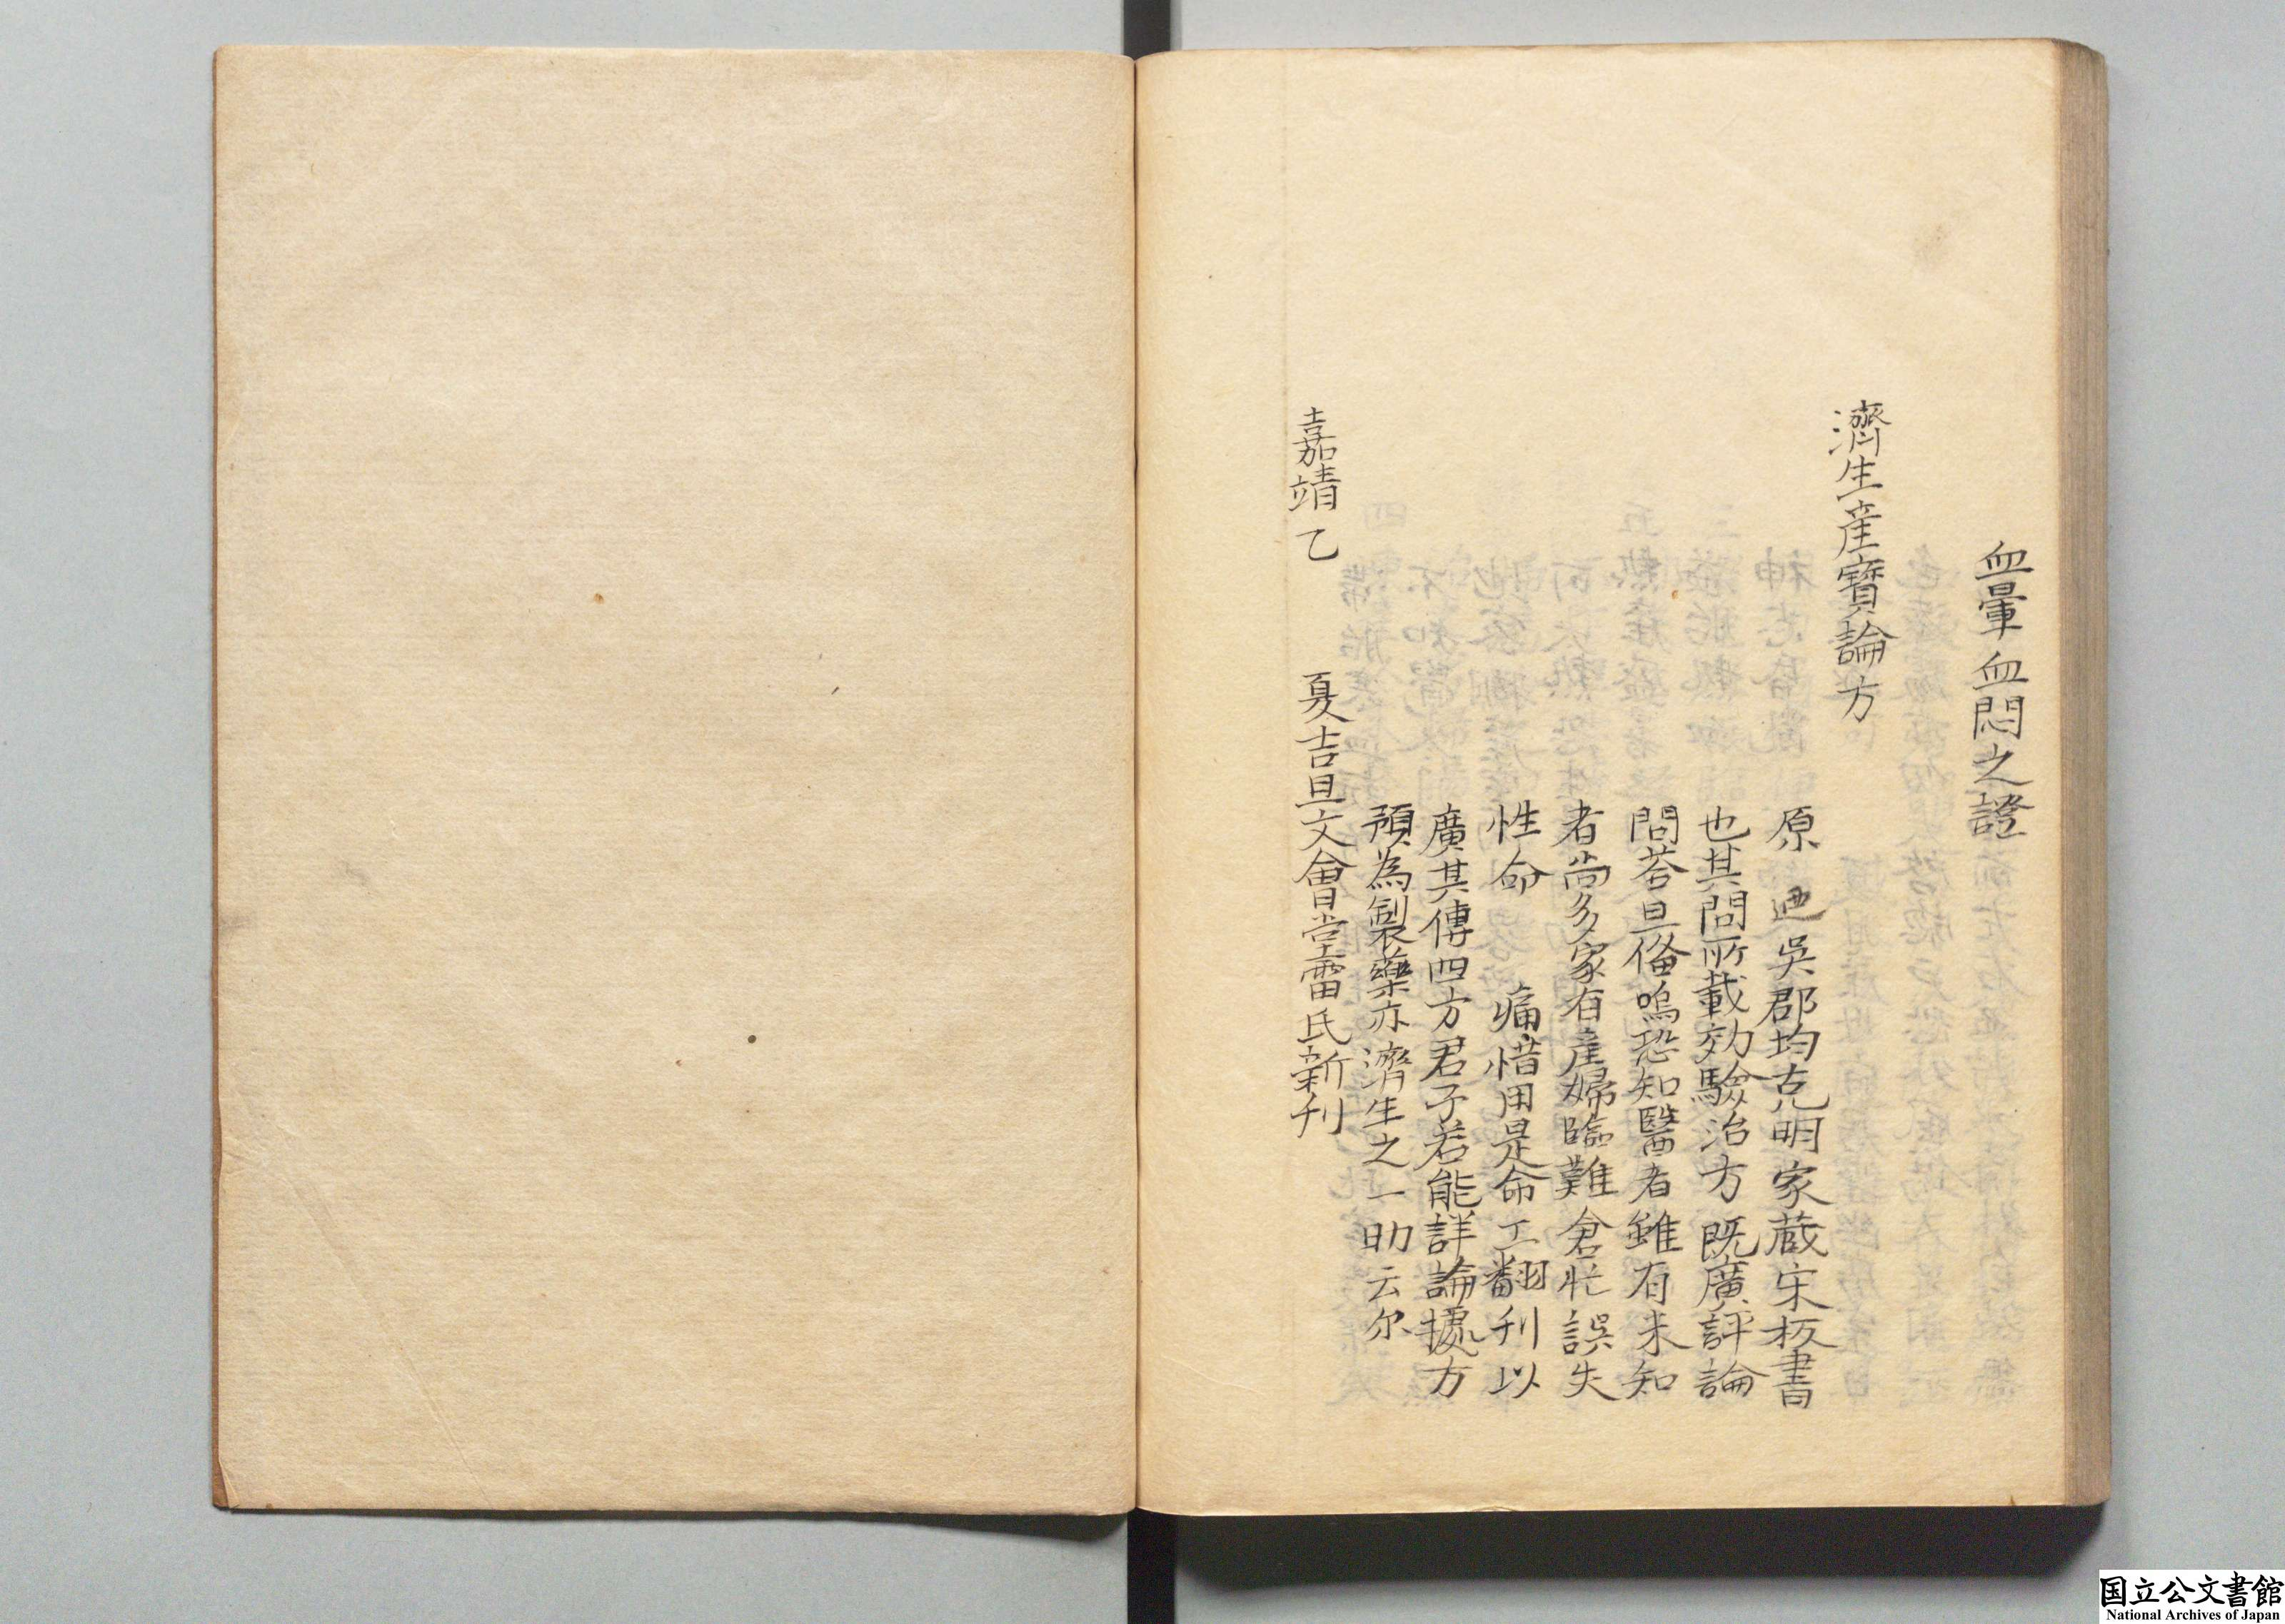 血暈血悶之證
濟生產寶論方
原 迺吳郡均克明家蔵宋板書
也其問所載効驗治方既廣評論
問荅且俻嗚恐知醫者雖有未知
者尚多家有產婦臨難倉忙誤失
性命 痛惜用是命工翻刊以
廣其傳四方君子若能詳論據方
預為製藥亦濟生之一助云尔
嘉靖乙 夏吉旦文會堂雷氏新刊
国立公文書館
National Archives of Japan